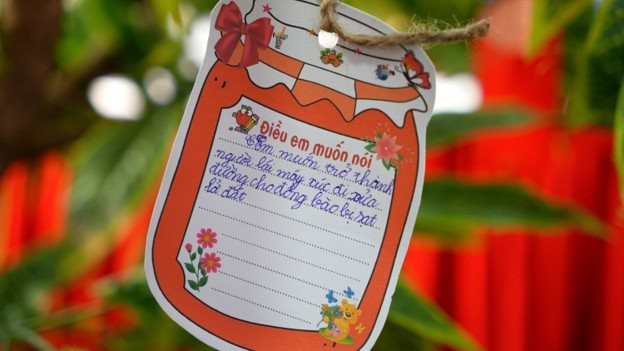 Điều em muốn nói
Em muốn trở thành
người lái máy xúc đi sửa
đường cho đồng bào bị sạt
lả đất